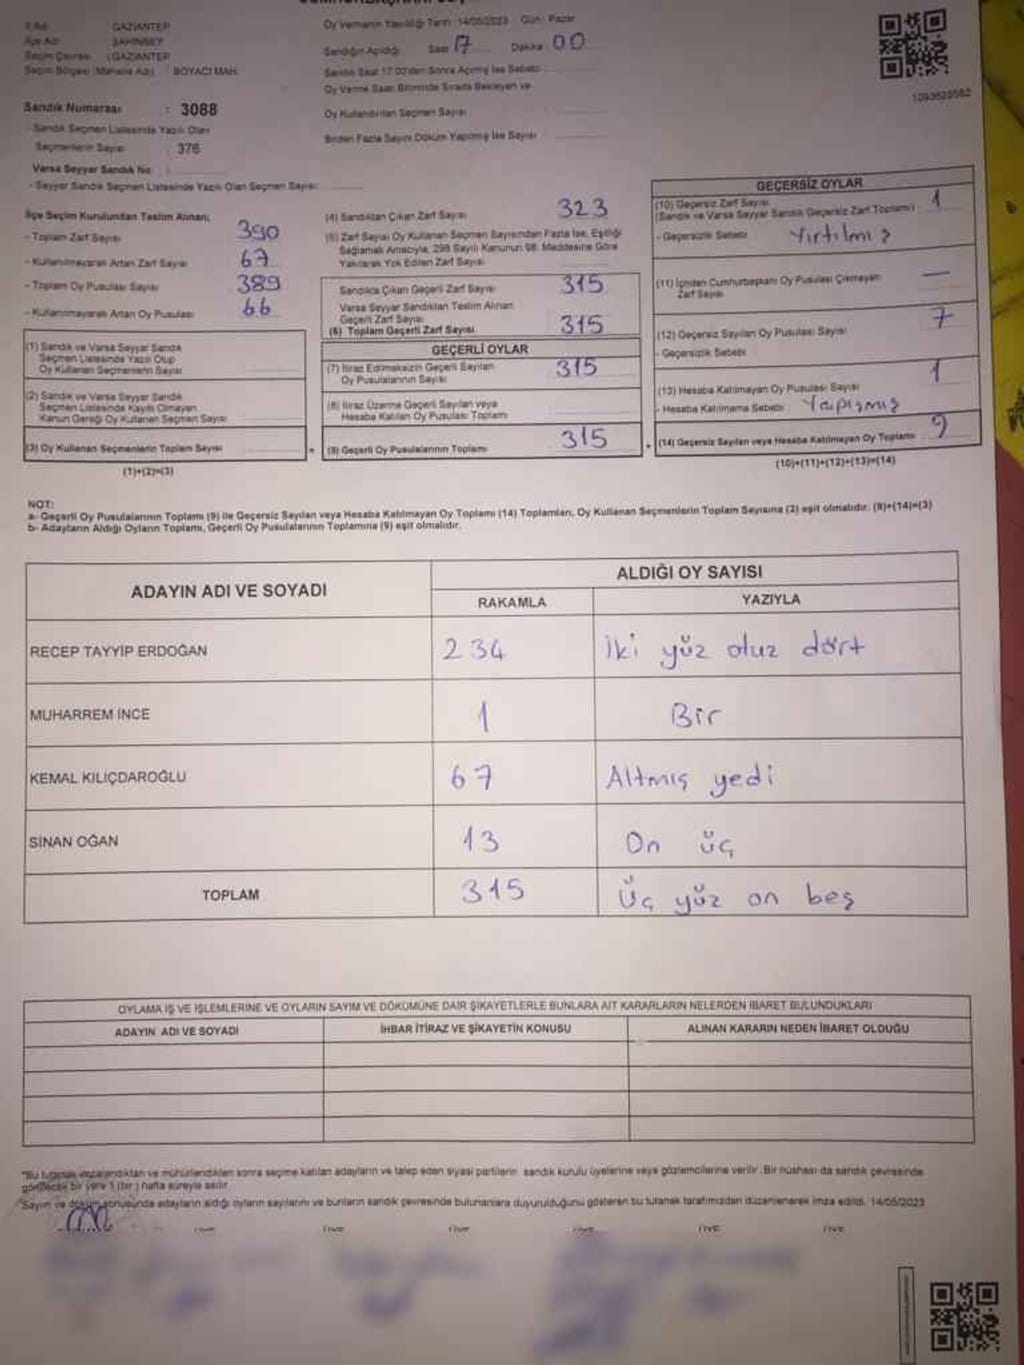 İl Adı : GAZİANTEP
İlçe Adı : ŞAHİNBEY
Seçim Çevresi : GAZİANTEP
Seçim Bölgesi (Mahalle Adı) : BOYACI MAH.
Sandık Numarası : 3088
- Sandık Seçmen Listesinde Yazılı Olan
Seçmenlerin Sayısı : 376
Varsa Seyyar Sandık No :
- Seyyar Sandık Seçmen Listesinde Yazılı Olan Seçmen Sayısı:
Oy Vermenin Yapıldığı Tarih : 14/05/2023 Gün : Pazar
Sandığın Açıldığı Saat 17 Dakika 00
Sandık Saat 17.00'den Sonra Açılmış İse Sebebi :
Oy Verme Saati Bitiminde Sırada Bekleyen ve
Oy Kullandırılan Seçmen Sayısı
Birden Fazla Sayım Döküm Yapılmış İse Sayısı
1093629582
İlçe Seçim Kurulundan Teslim Alınan;
- Toplam Zarf Sayısı 390
- Kullanılmayarak Artan Zarf Sayısı 67
- Toplam Oy Pusulası Sayısı 389
- Kullanılmayarak Artan Oy Pusulası 66
(1) Sandık ve Varsa Seyyar Sandık
Seçmen Listesinde Yazılı Olup
Oy Kullanan Seçmenlerin Sayısı
(2) Sandık ve Varsa Seyyar Sandık
Seçmen Listesinde Kayıtlı Olmayan
Kanun Gereği Oy Kullanan Seçmen Sayısı
(3) Oy Kullanan Seçmenlerin Toplam Sayısı
(1)+(2)=(3)
(4) Sandıktan Çıkan Zarf Sayısı 323
(5) Zarf Sayısı Oy Kullanan Seçmen Sayısından Fazla İse, Eşitliği
Sağlamak Amacıyla; 298 Sayılı Kanunun 98. Maddesine Göre
Yakılarak Yok Edilen Zarf Sayısı
Sandıkta Çıkan Geçerli Zarf Sayısı 315
Varsa Seyyar Sandıktan Teslim Alınan
Geçerli Zarf Sayısı
(6) Toplam Geçerli Zarf Sayısı 315
GEÇERLİ OYLAR
(7) İtiraz Edilmeksizin Geçerli Sayılan
Oy Pusulalarının Sayısı 315
(8) İtiraz Üzerine Geçerli Sayılan veya
Hesaba Katılan Oy Pusulası Toplamı
= (9) Geçerli Oy Pusulalarının Toplamı 315
GEÇERSİZ OYLAR
(10) Geçersiz Zarf Sayısı 1
(Sandık ve Varsa Seyyar Sandık Geçersiz Zarf Toplamı)
- Geçersizlik Sebebi Yırtılmış
(11) İçinden Cumhurbaşkanı Oy Pusulası Çıkmayan —
Zarf Sayısı
(12) Geçersiz Sayılan Oy Pusulası Sayısı 7
- Geçersizlik Sebebi
(13) Hesaba Katılmayan Oy Pusulası Sayısı 1
- Hesaba Katılmama Sebebi: Yapışmış
+ (14) Geçersiz Sayılan veya Hesaba Katılmayan Oy Toplamı 9
(10)+(11)+(12)+(13)=(14)
NOT:
a- Geçerli Oy Pusulalarının Toplamı (9) ile Geçersiz Sayılan veya Hesaba Katılmayan Oy Toplamı (14) Toplamları, Oy Kullanan Seçmenlerin Toplam Sayısına (3) eşit olmalıdır. (9)+(14)=(3)
b- Adayların Aldığı Oyların Toplamı, Geçerli Oy Pusulalarının Toplamına (9) eşit olmalıdır.
ADAYIN ADI VE SOYADI
ALDIĞI OY SAYISI
RAKAMLA YAZIYLA
RECEP TAYYİP ERDOĞAN 234 İki yüz otuz dört
MUHARREM İNCE 1 Bir
KEMAL KILIÇDAROĞLU 67 Altmış yedi
SİNAN OĞAN 13 On üç
TOPLAM 315 Üç yüz on beş
OYLAMA İŞ VE İŞLEMLERİNE VE OYLARIN SAYIM VE DÖKÜMÜNE DAİR ŞİKAYETLERLE BUNLARA AİT KARARLARIN NELERDEN İBARET BULUNDUKLARI
ADAYIN ADI VE SOYADI İHBAR İTİRAZ VE ŞİKAYETİN KONUSU ALINAN KARARIN NEDEN İBARET OLDUĞU
*Bu tutanak imzalandıktan ve mühürlendikten sonra seçime katılan adayların ve talep eden siyasi partilerin sandık kurulu üyelerine veya gözlemcilerine verilir. Bir nüshası da sandık çevresinde
görülecek bir yere 1 (bir) hafta süreyle asılır.
*Sayım ve döküm sonusunda adayların aldığı oyların sayılarını ve bunların sandık çevresinde bulunanlara duyurulduğunu gösteren bu tutanak tarafımızdan düzenlenerek imza edildi. 14/05/2023
ÜYE ÜYE ÜYE ÜYE ÜYE ÜYE